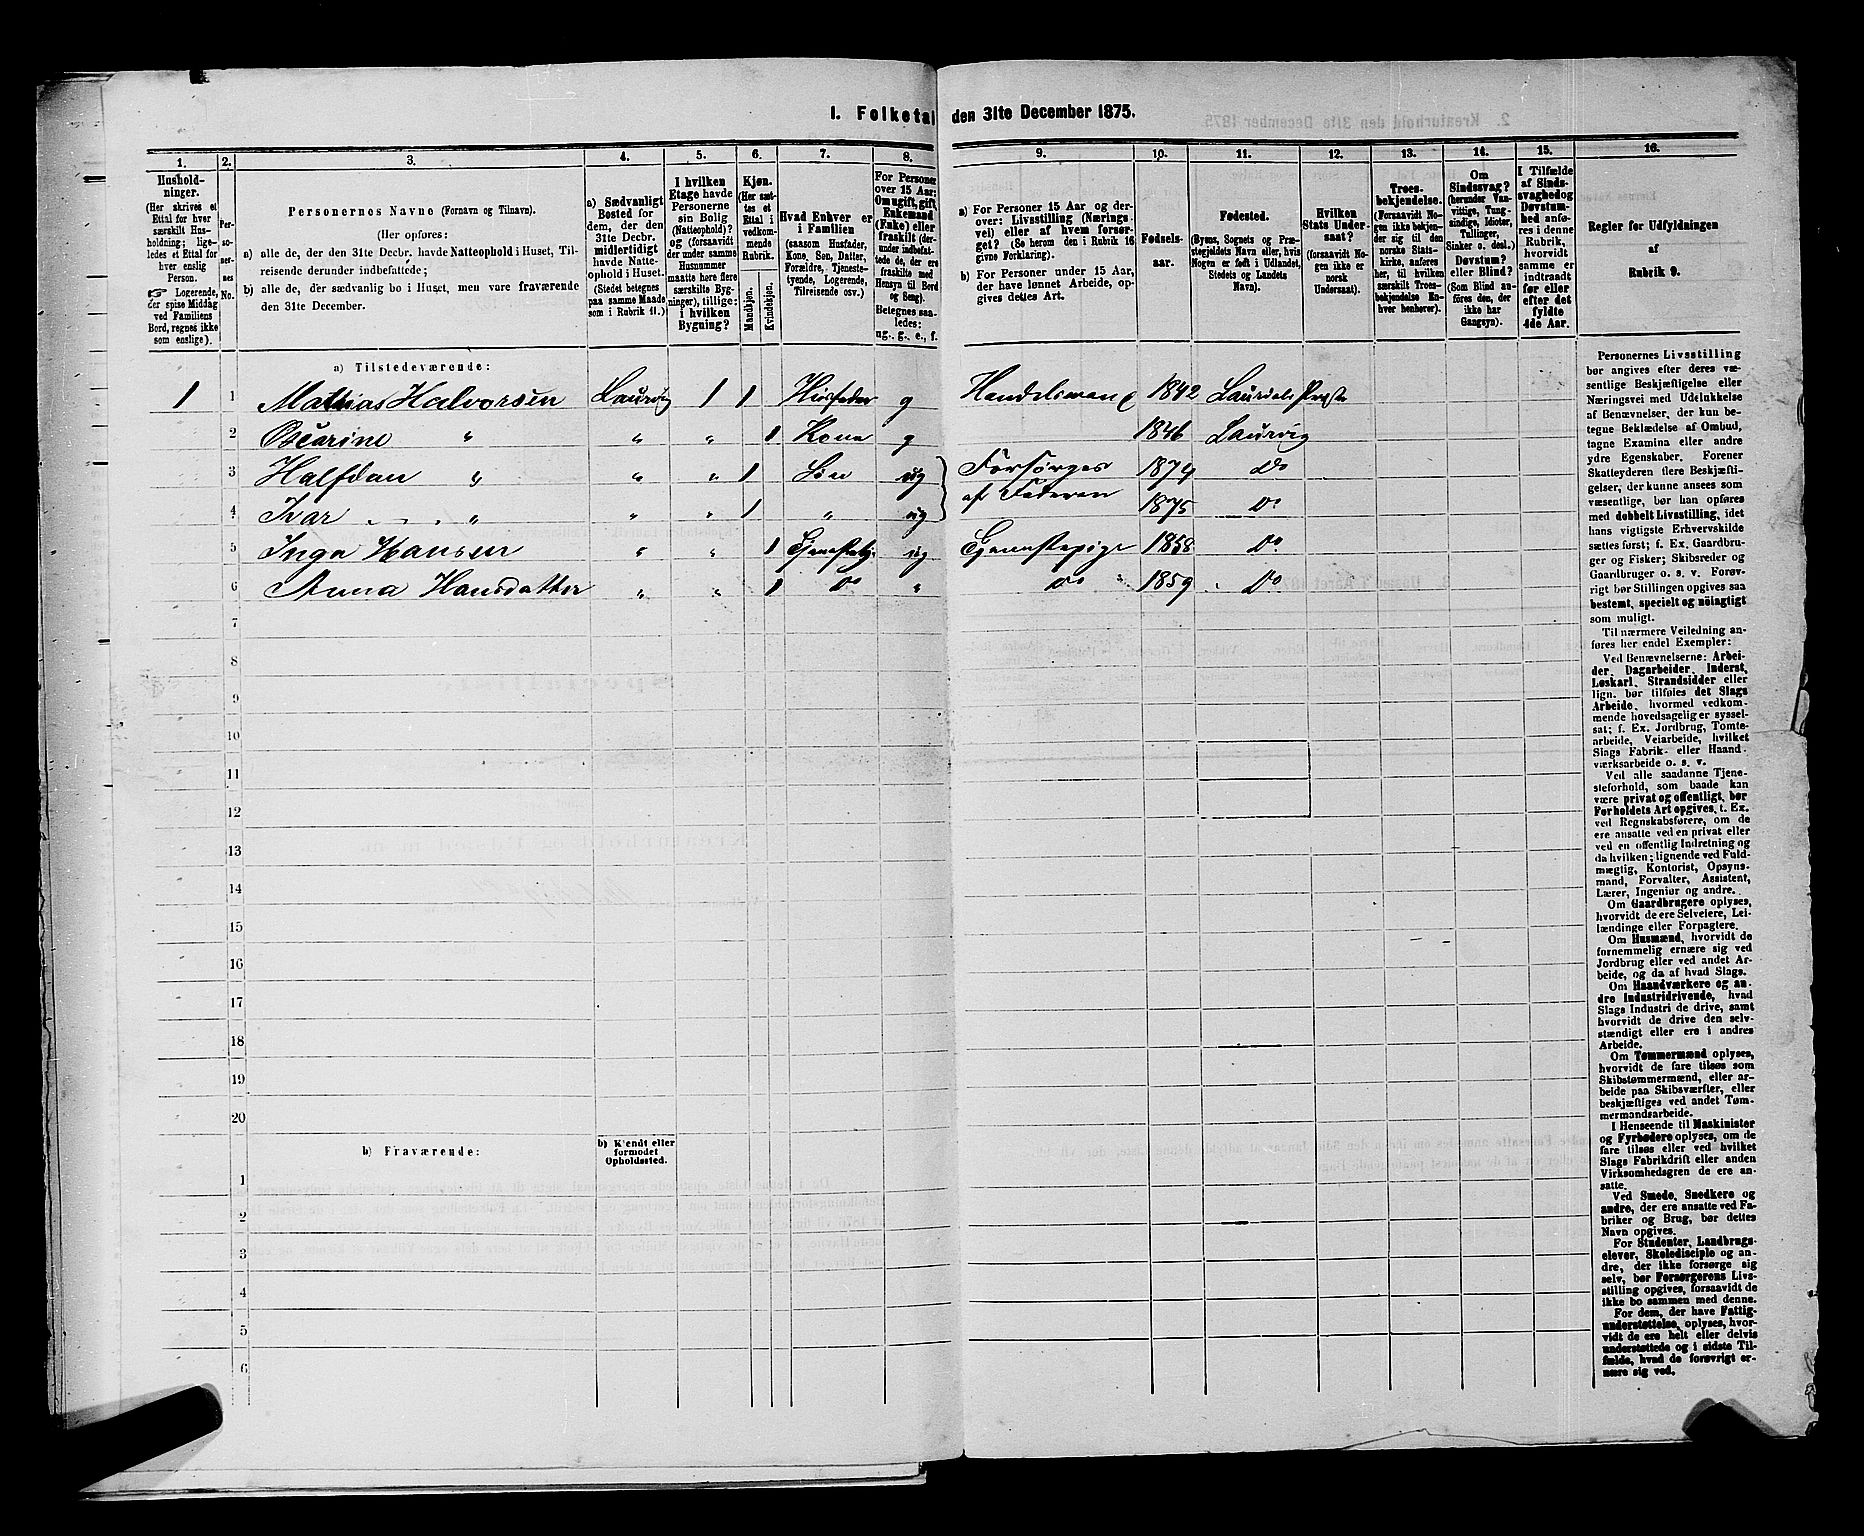 1. Folketal den 31te December 1875.
1.
2.
3.
4.
5.
6.
7.
8.
9.
10.
11.
12.
13.
14.
15.
16.
Hushold-
ninger.
(Her skrives et
Ettal for hver
særskilt Hus-
holdning; lige-
ledes et Ettal for
hver enslig
Person.
☞ Logerende,
der spise Middag
ved Familiens
Bord, regnes ikke
som enslige).
Per-
so-
ner-
nes
No.
Personernes Navne (Fornavn og Tilnavn).
(Her opføres:
a) alle de, der den 31te Decbr. havde Natteophold i Huset, Til-
reisende derunder indbefattede;
b) alle de, der sædvanlig bo i Huset, men vare fraværende
den 31te December.
a) Sædvanligt
Bosted for
dem, der den
31te Decbr.
midlertidigt
havde Natte-
ophold i Huset.
(Stedet betegnes
paa samme Maade
som i Rubrik 11.)
I hvilken
Etage havde
Personerne
sin Bolig
(Natteophold)?
og (forsaavidt
der under samme
Husnummer
maatte høre flere
særskilte Byg-
ninger), tillige:
i hvilken
Bygning?
Kjøn.
(Her sæt-
tes et
Ettal i
vedkom-
mende
Rubrik.
Mandkjøn.
Kvindekjøn.
Hvad Enhver er
i Familien
(saasom Husfader,
Kone, Søn, Datter,
Forældre, Tjeneste-
tyende, Logerende,
Tilreisende osv.)
For Personer
over 15 Aar:
Om ugift, gift,
Enkemand
(Enke) eller
fraskilt (der-
under indbefat-
tede de, der ere
fraskilte med
Hensyn til Bord
og Seng).
Betegnes saa-
ledes:
ug., g., e., f.
a) For Personer 15 Aar og der-
over: Livsstilling (Nærings-
vei) eller af hvem forsør-
get? (Se herom den i Rubrik 16
givne Forklaring).
b) For Personer under 15 Aar,
der have lønnet Arbeide, op-
gives dettes Art.
Fødsels-
aar.
Fødested.
(Byens, Sognets og Præ-
stegjeldets Navn eller, hvis
Nogen er født i Udlandet,
Stedets og Landets
Navn).
Hvilken
Stats Under-
saat?
(forsaavidt No-
gen ikke er
norsk
Undersaat).
Troes-
bekjendelse.
(Forsaavidt No-
gen ikke bekjen-
der sig til den
norske Stats-
kirke, anføres
her, til hvilken
særskilt Troes-
bekjendelse En-
hver henhører).
Om
Sindssvag?
(herunder Van-
vittige, Tung-
sindige, Idioter,
Tullinger,
Sinker o. desl.)
Døvstum?
eller Blind?
(Som Blind an-
føres den, der
ikke har
Gangsyn).
I Tilfælde
af Sinds-
svaghed og
Døvstum-
hed anfø-
res i denne
Rubrik,
hvorvidt
samme er
indtraadt
før eller
efter det
fyldte
4de Aar.
Regler for Udfyldningen
af
Rubrik 9.
a) Tilstedeværende:
1 1 Mathias Halvorsen Laurvig 1 1 Husfader g Handelsmand 1842 Laurdals Præst
2 Oscarine " " " 1 Kone g 1846 Laurvig
3 Halfdan " " " 1 Søn ug Forsørges 1874 Do
4 Ivar " " " 1 " ug af Faderen 1875 Do
5 Inga Hansen " " 1 ug 1858 Do
6 Anna Hansdatter " " 1 Do " Do 1859 Do
7
8
9
10
11
12
13
14
15
16
17
18
19
20
b) Fraværende:
b) Kjendt eller
formodet
Opholdssted.
1
2
3
4
5
6
Personernes Livsstilling
bør angives efter deres væ-
sentlige Beskjæftigelse eller
Næringsvei med Udelukkelse
af Benævnelser, der kun be-
tegne Beklædelse af Ombud,
tagne Examina eller andre
ydre Egenskaber. Forener
Skatteyderen flere Beskjæfti-
gelser, der kunne ansees som
væsentlige, bør han opføres
med dobbelt Livsstilling, idet
hans vigtigste Erhvervskilde
sættes først; f. Ex. Gaardbru-
ger og Fisker; Skibsreder og
Gaardbruger o. s. v. Forøv-
rigt bør Stillingen opgives saa
bestemt, specielt og nöiagtigt
som muligt.
Til nærmere Veiledning an-
føres her endel Exempler:
Ved Benævnelserne: Arbei-
der, Dagarbeider, Inderst,
Løskarl, Strandsidder eller
lign. bør tilføies det Slags
Arbeide, hvormed vedkom-
mende hovedsagelig er syssel-
sat; f. Ex. Jordbrug, Tomte-
arbeide, Veiarbeide, hvilket
Slags Fabrik- eller Haand-
værksarbeide o. s. v.
Ved alle saadanne Tjene-
steforhold, som baade kan
være privat og offentligt, bør
Forholdets Art opgives, t. Ex.
ved Regnskabsførere, om de
ere ansatte ved en privat eller
ved en offentlig Indretning og
da hvilken; lignende ved Fuld-
mægtig, Kontorist, Opsyns-
mand, Forvalter, Assistent,
Lærer, Ingeniør og andre.
Om Gaardbrugere oplyses,
hvorvidt de ere Selveiere, Lei-
lændinge eller Forpagtere.
Om Husmænd, hvorvidt de
fornemmelig ernære sig ved
Jordbrug eller ved andet Ar-
beide, og da af hvad Slags.
Om Haandværkere og an-
dre Industridrivende, hvad
Slags Industri de drive, samt
hvorvidt de drive den selv-
stændigt eller ere i andres
Arbeide.
Om Tømmermænd oplyses,
hvorvidt de fare tilsøs som
Skibstømmermænd, eller ar-
beide paa Skibsværfter, eller
beskjæftiges ved andet Tøm-
mermandsarbeide.
I Henseende til Maskinister
og Fyrbødere oplyses, om de
fare tilsøs eller ved hvilket
Slags Fabrikdrift eller anden
Virksomhedsgren de ere an-
satte.
Ved Smede, Snedkere og
andre, der ere ansatte ved Fa-
briker og Brug, bør dettes
Navn opgives.
For Studenter, Landbrugs-
elever, Skoledisciple og an-
dre, der ikke forsørge sig
selv, bør Forsørgerens Livs-
stilling opgives, forsaavidt de
ikke bo sammen med denne.
For dem, der have Fattig-
understøttelse, oplyses, hvor-
vidt de ere helt eller delvis
understøttede og i sidste Til-
fælde, hvad de forøvrigt er-
nære sig ved.